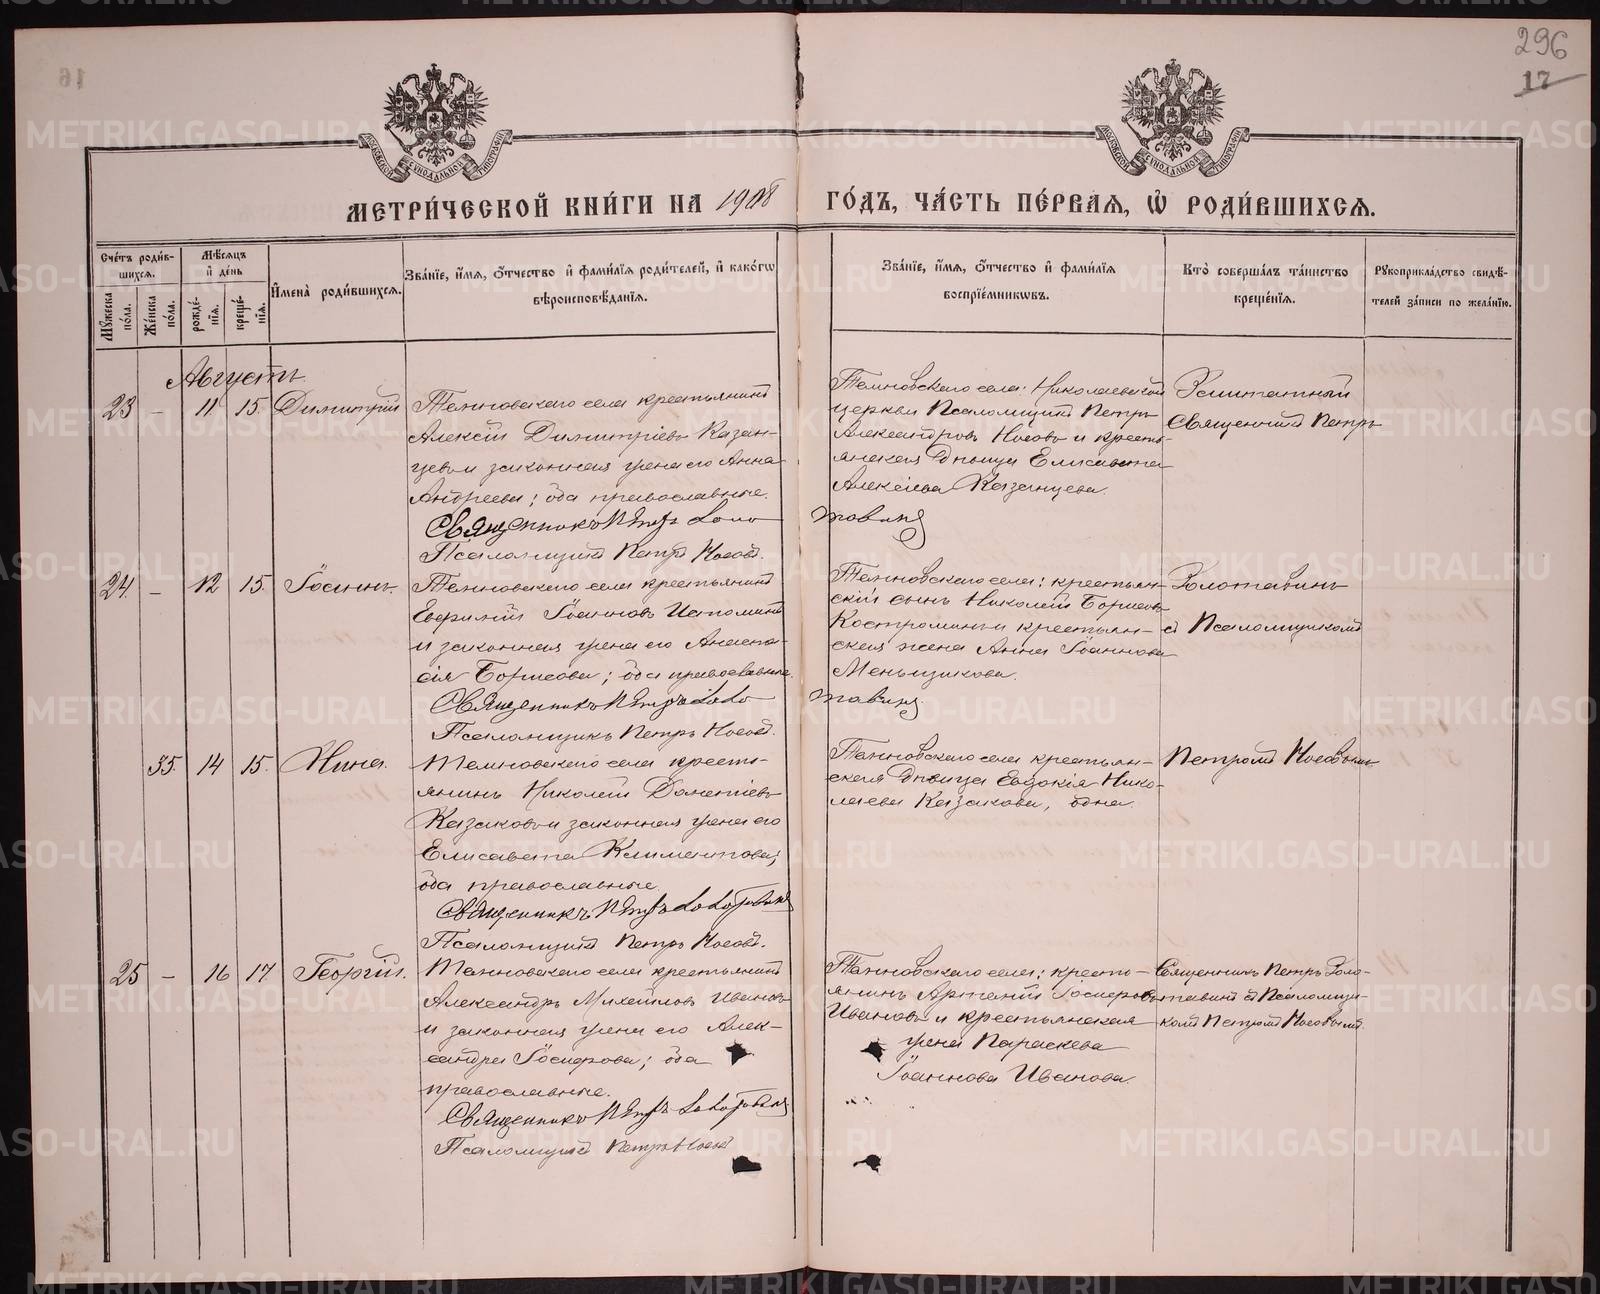 296
17
МОСКОВСКОЙ СѴНОДАЛЬНОЙ ТИПОГРАФІИ
МОСКОВСКОЙ СѴНОДАЛЬНОЙ ТИПОГРАФІИ
МЕТРИ́ЧЕСКОЙ КНИ́ГИ НА 1908 ГО́ДЪ, ЧА́СТЬ ПЕ́РВАѦ, Ѡ҆ РОДИ́ВШИХСѦ.
Сче́тъ роди́в-
шихсѧ.
Мꙋ́жеска по́ла.
Же́нска по́ла.
Мѣ́сѧцъ
и҆ де́нь
рожде́-
нїѧ.
креще́-
нїѧ.
И҆мена̀ роди́вшихсѧ.
Зва́нїе, и҆́мѧ, ѻ҆́тчество и҆ фами́лїѧ роди́телей, и҆ како́гѡ
вѣроисповѣ́данїѧ.
Зва́нїе, и҆́мѧ, ѻ҆́тчество и҆ фами́лїѧ
воспрїе́мникѡвъ.
Кто̀ соверша́лъ та́инство
креще́нїѧ.
Рꙋкоприкла́дство свидѣ́-
телей за́писи по жела́нїю.
Августъ
23 – 11 15. Димитрій
Темновскаго села крестьянинъ
Алексій Димитріевъ Казан-
цевъ и законная жена его Анна
Андреева; оба православные.
Священникъ Петръ Золо
тавинъ
Псаломщикъ Петръ Носовъ.
Темновскаго села: Николаевской
церкви Псаломщикъ Петръ
Александровъ Носовъ и кресть-
янская дѣвица Елисавета
Алексіева Казанцева.
Заштатный
Священникъ Петръ
24. – 12 15. Іоаннъ.
Темновскаго села крестьянинъ
Евфимій Іоанновъ Истоминъ
и законная жена его Анаста-
сія Борисова; оба православные.
Священникъ Петръ Золо
тавинъ
Псаломщикъ Петръ Носовъ.
Темновскаго села: крестьян-
скій сынъ Николай Борисовъ
Костроминъ и крестьян-
ская жена Анна Іоаннова
Меньщикова.
Золотавинъ
съ Псаломщикомъ
35. 14 15. Нина.
Темновскаго села кресть-
янинъ Николай
Казаковъ и законная жена его
Елисавета Климентова;
оба православные.
Священникъ Петръ Золотавинъ
Псаломщикъ Петръ Носовъ.
Темновскаго села крестьян-
ская дѣвица Евдокія Нико-
лаева Казакова, одна.
Петромъ Носовымъ
25 – 16 17 Георгій.
Темновскаго села крестьянинъ
Александръ Михайловъ Ивановъ
и законная жена его Алек-
сандра Іосифова; оба
православные.
Священникъ Петръ Золотавинъ
Псаломщикъ Петръ Носовъ
Темновскаго села: кресть-
янинъ Артемій Іосифовъ
Ивановъ и крестьянская
жена Параскева
Іоаннова Иванова.
Священникъ Петръ Золо-
тавинъ съ Псаломщи-
комъ Петромъ Носовымъ.
METRIKI.GASO-URAL.RU